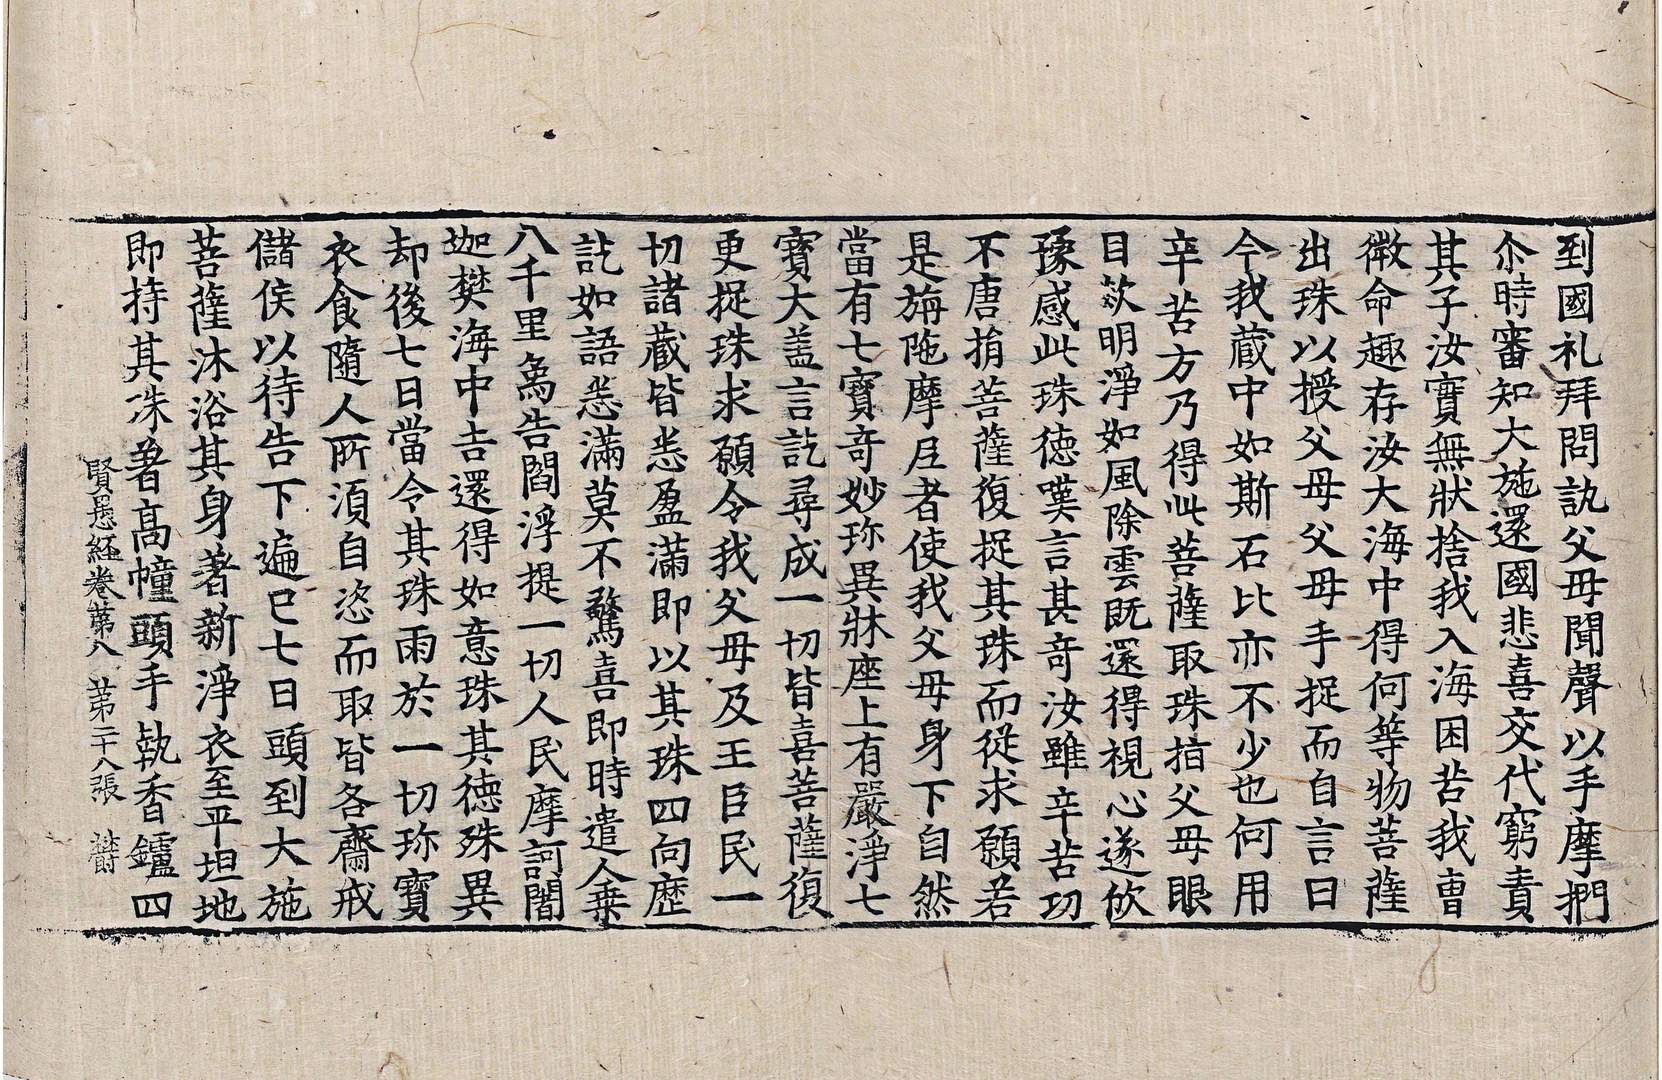 到國礼拜問訊父母聞聲以手摩捫
尒時審知大施還國悲喜交代窮責
其子汝實無狀捨我入海困苦我曺
微命趣存汝大海中得何等物菩薩
出珠以授父母父母手捉而自言曰
今我蔵中如斯石比亦不少也何用
辛苦方乃得此菩薩取珠拍父母眼
目欻明淨如風除雲既還得視心遂欣
豫感此珠徳嘆言甚奇汝雖辛苦功
不唐捐菩薩復捉其珠而從求願若
是旃陁摩尼者使我父母身下自然
當有七寶奇妙珎異牀座上有嚴淨七
寶大盖言訖尋成一切皆喜菩薩復
更捉珠求願令我父母及王臣民一
切諸蔵皆悉盈滿即以其珠四向歷
訖如語悉滿莫不驚喜即時遣人乗
八千里為告閻浮提一切人民摩訶闍
迦樊海中吉還得如意珠其徳殊異
却後七日當令其珠雨於一切珎寶
衣食隨人所湏自恣而取皆各齋戒
儲俟以待告下遍已七日頭到大施
菩薩沐浴其身著新淨衣至平坦地
即持其珠著高幢頭手執香鑪四
賢愚経卷苐八 苐二十八張 欝